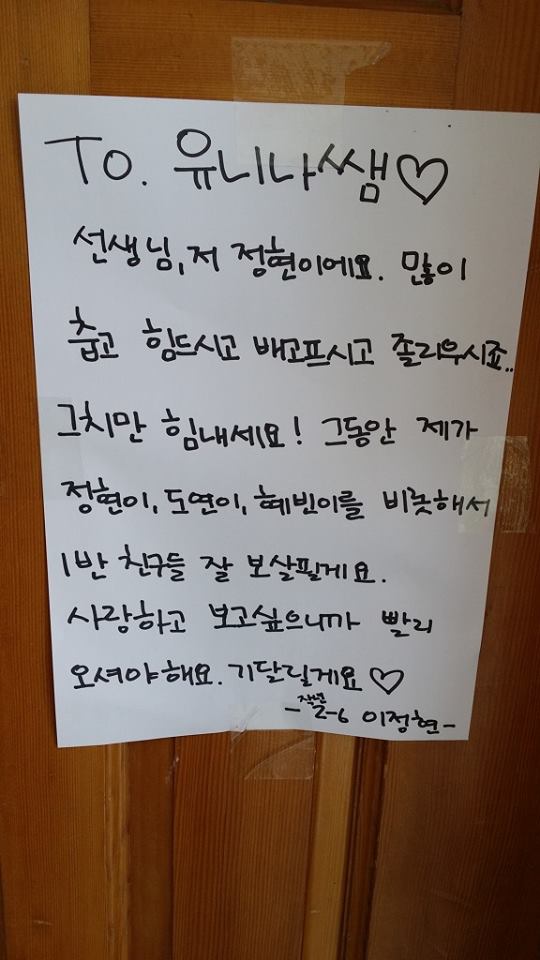 To. 유니나쌤♡
선생님, 저 정현이에요. 많이
춥고 힘드시고 배고프시고 졸리우시죠..
그치만 힘내세요! 그동안 제가
정현이, 도연이, 혜빈이를 비롯해서
1반 친구들 잘 보살필게요.
사랑하고 보고싶으니까 빨리
오셔야해요. 기달릴게요♡
-작년 2-6 이정현-